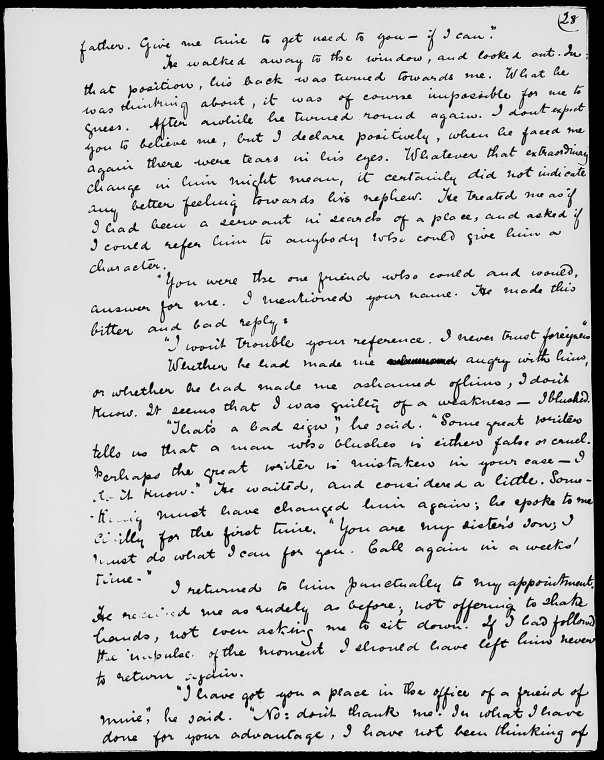 28
father. Give me time to get used to you — if I can."
He walked away to the window, and looked out. In
that position, his back was turned towards me. What he
was thinking about, it was of course impossible for me to
guess. After awhile he turned round again. I dont expect
you to believe me, but I declare positively, when he faced me
again there were tears in his eyes. Whatever that extraordinary
change in him might mean, it certainly did not indicate
any better feeling towards his nephew. He treated me as if
I had been a servant in search of a place, and asked if
I could refer him to anybody who could give him a
character.
"You were the one friend who could and would,
answer for me. I mentioned your name. He made this
bitter and bad reply:
"I won't trouble your reference. I never trust foreigners"
Whether he had made me angry with him,
or whether he had made me ashamed of him, I don't
know. It seems that I was guilty of a weakness — I blushed.
"That's a bad sign", he said. "Some great writer
tells us that a man who blushes is either false or cruel.
Perhaps the great writer is mistaken in your case — I
don't know." He waited, and considered a little. Some-
thing must have changed him again; he spoke to me
civilly for the first time. "You are my sister's son; I
must do what I can for you. Call again in a weeks'
time."
I returned to him punctually to my appointment.
He received me as rudely as before; not offering to shake
hands, not even asking me to sit down. If I had followed
the impulse of the moment I should have left him never
to return again.
"I have got you a place in the office of a friend of
mine", he said. "No: don't thank me. In what I have
done for your advantage, I have not been thinking of